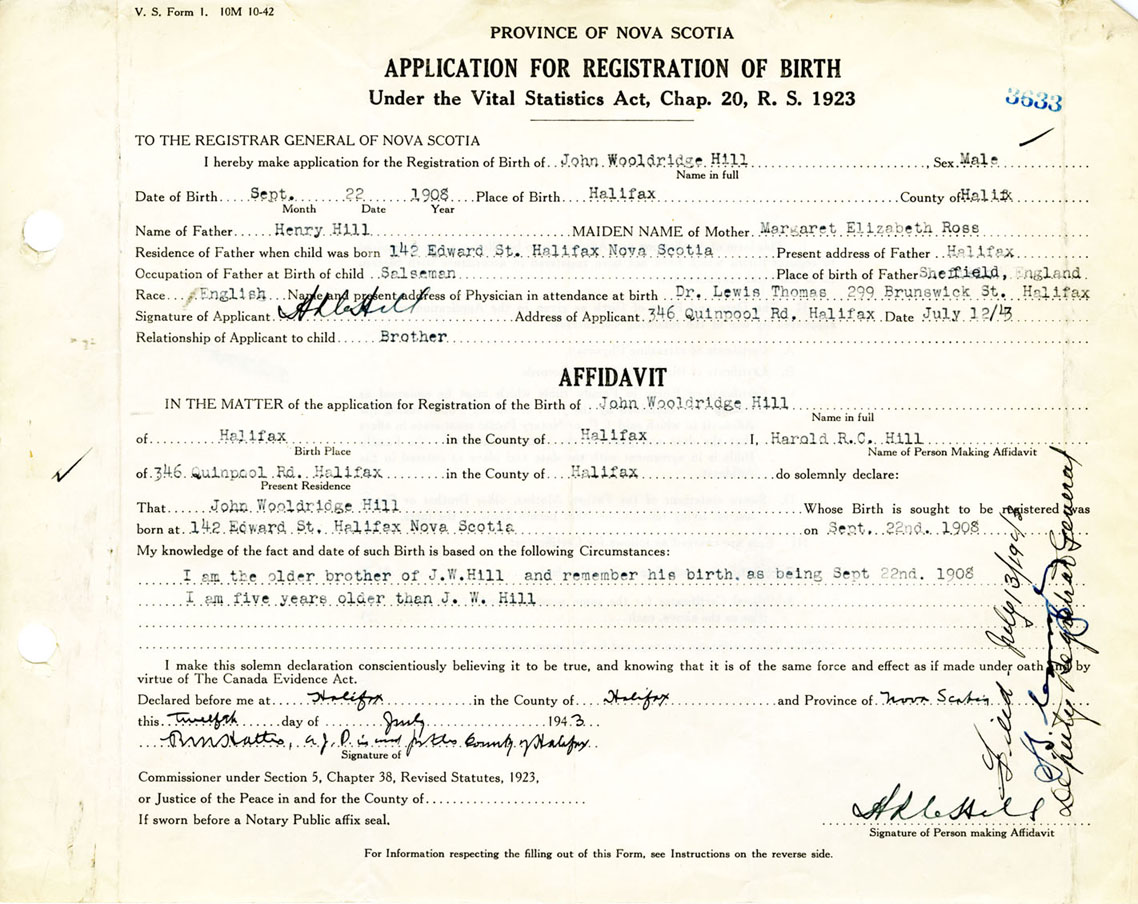 V. S. Form 1. 10M 10-42
PROVINCE OF NOVA SCOTIA
APPLICATION FOR REGISTRATION OF BIRTH
Under the Vital Statistics Act, Chap. 20, R. S. 1923
3633
TO THE REGISTRAR GENERAL OF NOVA SCOTIA
I hereby make application for the Registration of Birth of John Wooldridge Hill, Sex Male
Name in full
Date of Birth Sept. 22 1908 Place of Birth Halifax County of Halifx
Month Date Year
Name of Father Henry Hill MAIDEN NAME of Mother Margaret Elizabeth Ross
Residence of Father when child was born 142 Edward St. Halifax Nova Scotia Present address of Father Halifax
Occupation of Father at Birth of child Salseman Place of birth of Father Sheffield, England
Race English Name and present address of Physician in attendance at birth Dr. Lewis Thomas 299 Brunswick St. Halifax
Signature of Applicant HRC Hill Address of Applicant 346 Quinpool Rd, Halifax Date July 12/43
Relationship of Applicant to child Brother
AFFIDAVIT
IN THE MATTER of the application for Registration of the Birth of John Wooldridge Hill
Name in full
of Halifax in the County of Halifax I, Harold R.C. Hill
Birth Place Name of Person Making Affidavit
of 346 Quinpool Rd, Halifax in the County of Halifax do solemnly declare:
Present Residence
That John Wooldridge Hill Whose Birth is sought to be registered was
born at 142 Edward St. Halifax Nova Scotia on Sept. 22nd. 1908
My knowledge of the fact and date of such Birth is based on the following Circumstances:
I am the older brother of J.W.Hill and remember his birth, as being Sept 22nd. 1908
I am five years older than J. W. Hill
I make this solemn declaration conscientiously believing it to be true, and knowing that it is of the same force and effect as if made under oath and by
virtue of The Canada Evidence Act.
Declared before me at Halifax in the County of Halifax and Province of Nova Scotia
this twelfth day of July 1943
a J. P. in and for the County of Halifax
Signature of
Commissioner under Section 5, Chapter 38, Revised Statutes, 1923,
or Justice of the Peace in and for the County of
If sworn before a Notary Public affix seal.
HRC Hill
Signature of Person making Affidavit
For Information respecting the filling out of this Form, see Instructions on the reverse side.
Filed - July 13/1943
Deputy Registrar General